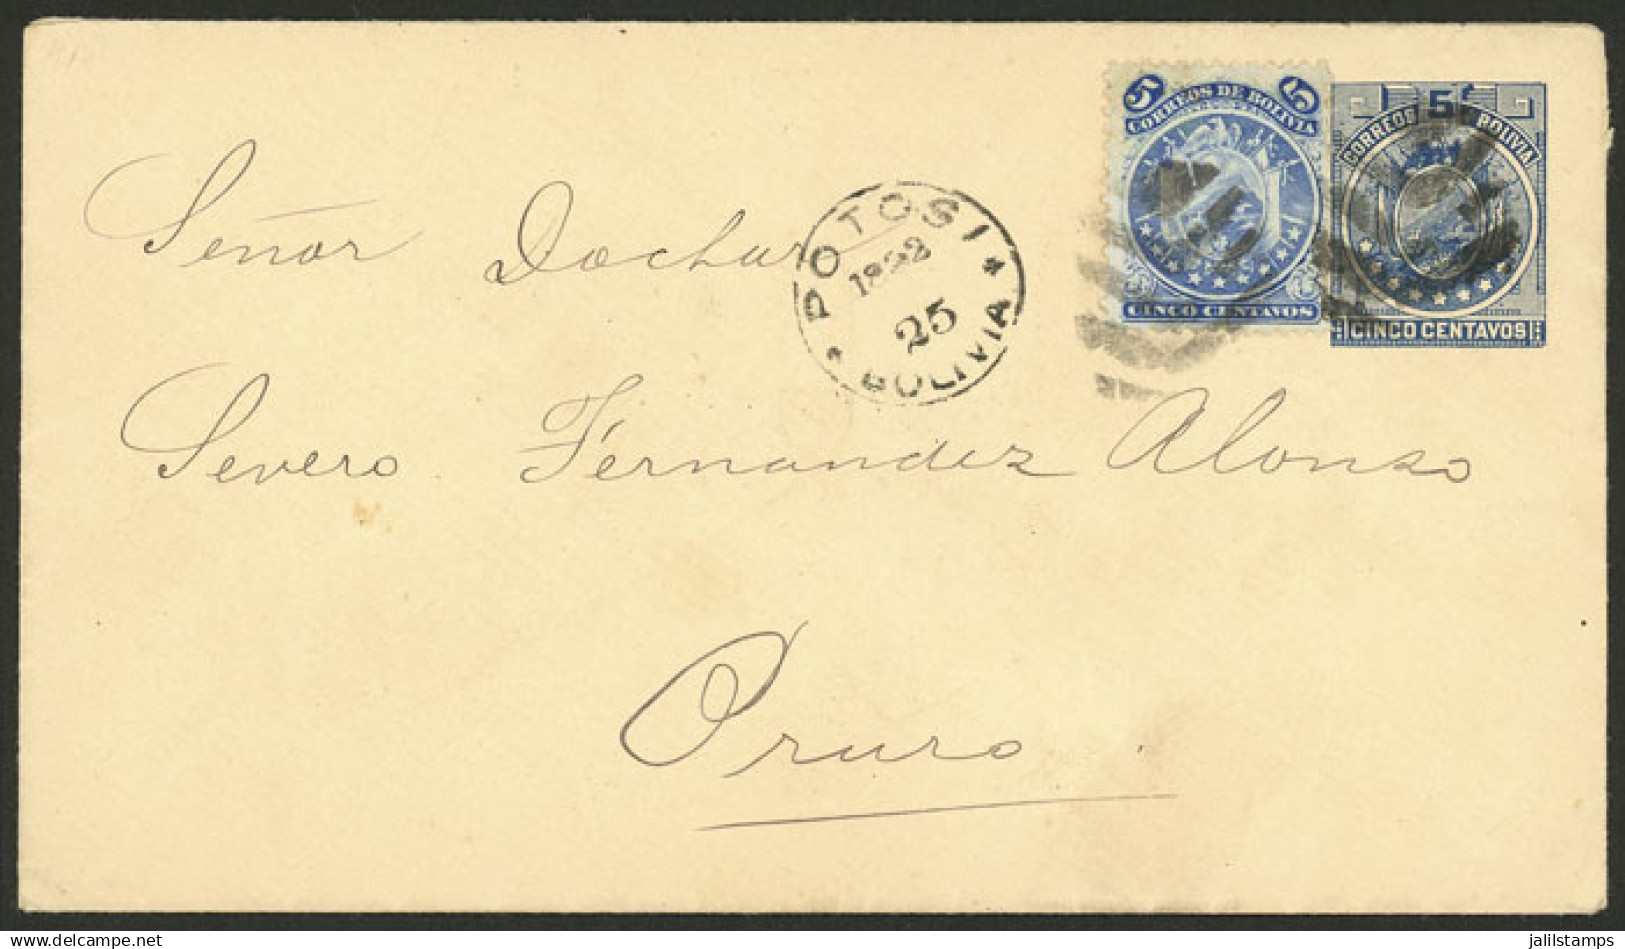 5 5
CORREOS DE BOLIVIA
CINCO CENTAVOS
CORREOS 5 BOLIVIA
CINCO CENTAVOS
Señor Doctor
POTOSI
25
BOLIVIA
Severo Fernandez Alonso
Oruro
jalilstamps